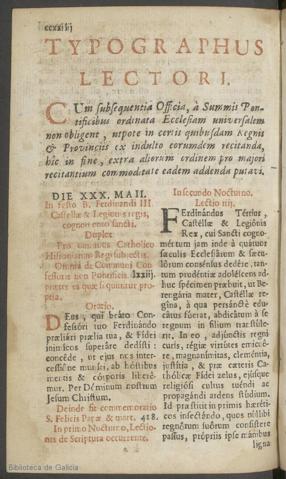 ccxxiiij
TYPOGRAPHUS
LECTORI.
CUm subsequentia Officia, à Summis Pon-
tificibus ordinata Ecclesiam universalem
non obligent, utpote in certis quibusdam Regnis
& Provinciis ex indulto eorumdem recitanda,
hîc in fine, extra aliorum ordinem pro majori
recitantium commoditate eadem addenda putavi.
DIE XXX. MAII.
In festo B. Ferdinandi III.
Castellæ & Legionis regis,
cognomento sancti.
Duplex
Pro omnibus Catholico
Hispaniarum Regi subjectis.
Omnia de Communi Con-
fessoris non Pontificis lxxiij.
præter ea quæ sequuntur pro-
pria.
Oratio.
DEus, qui beato Con-
fessori tuo Ferdinando
præliari prælia tua, & fidei
inimicos superáre dedisti:
concéde, ut ejus nos inter-
cessióne muniti, ab hóstibus
mentis & córporis liberé-
mur. Per Dóminum nostrum
Jesum Christum.
Deinde fit commemoratio
S. Felicis Papæ & mart. 428.
In primo Nocturno, Lectio-
nes de Scriptura occurrente.
In secundo Nocturno.
Lectio iiij.
FErdinándus Tértius,
Castéllæ & Legiónis
Rex, cui Sancti cogno-
méntum jam inde à quátuor
sæculis Ecclesiásticum & sæcu-
lárium consénsus dedére, tan-
tum prudéntiæ adoléscens ad-
huc specimen præbuit, ut Be-
rengária mater, Castéllæ re-
gina, à qua persánctè edu-
cátus fúerat, abdicátum à se
regnum in filium transtúle-
rit. In eo, adjúnctis regni
curis, régiæ virtútes emicué-
re, magnanimitas, cleméntia,
justitia, & præ céteris Ca-
thólicæ Fidei zelus, ejúsque
religiósi cultus tuéndi ac
propagándi ardens stúdium.
Id præstitit in primis hæréti-
cos insectándo, quos nullibi
regnórum suórum consístere
passus, própriis ipse mánibus
ligna
Biblioteca de Galicia